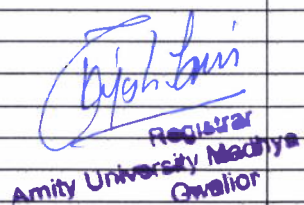 Registrar
Amity University Madhya
Gwalior